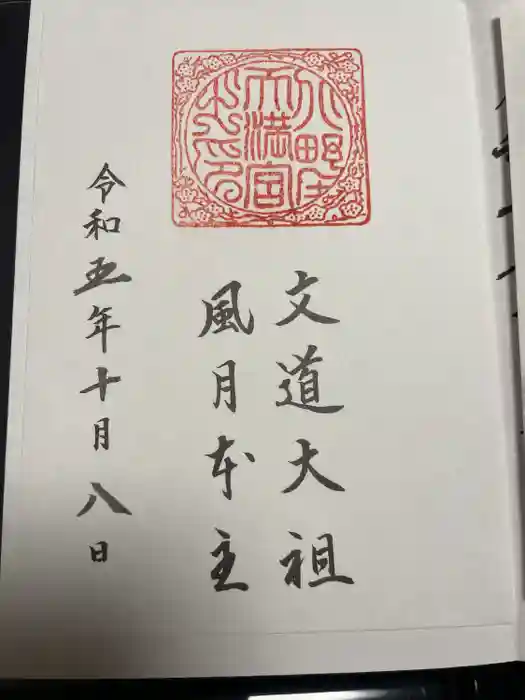 文道大祖
風月本主
令和五年十月八日
天満宮